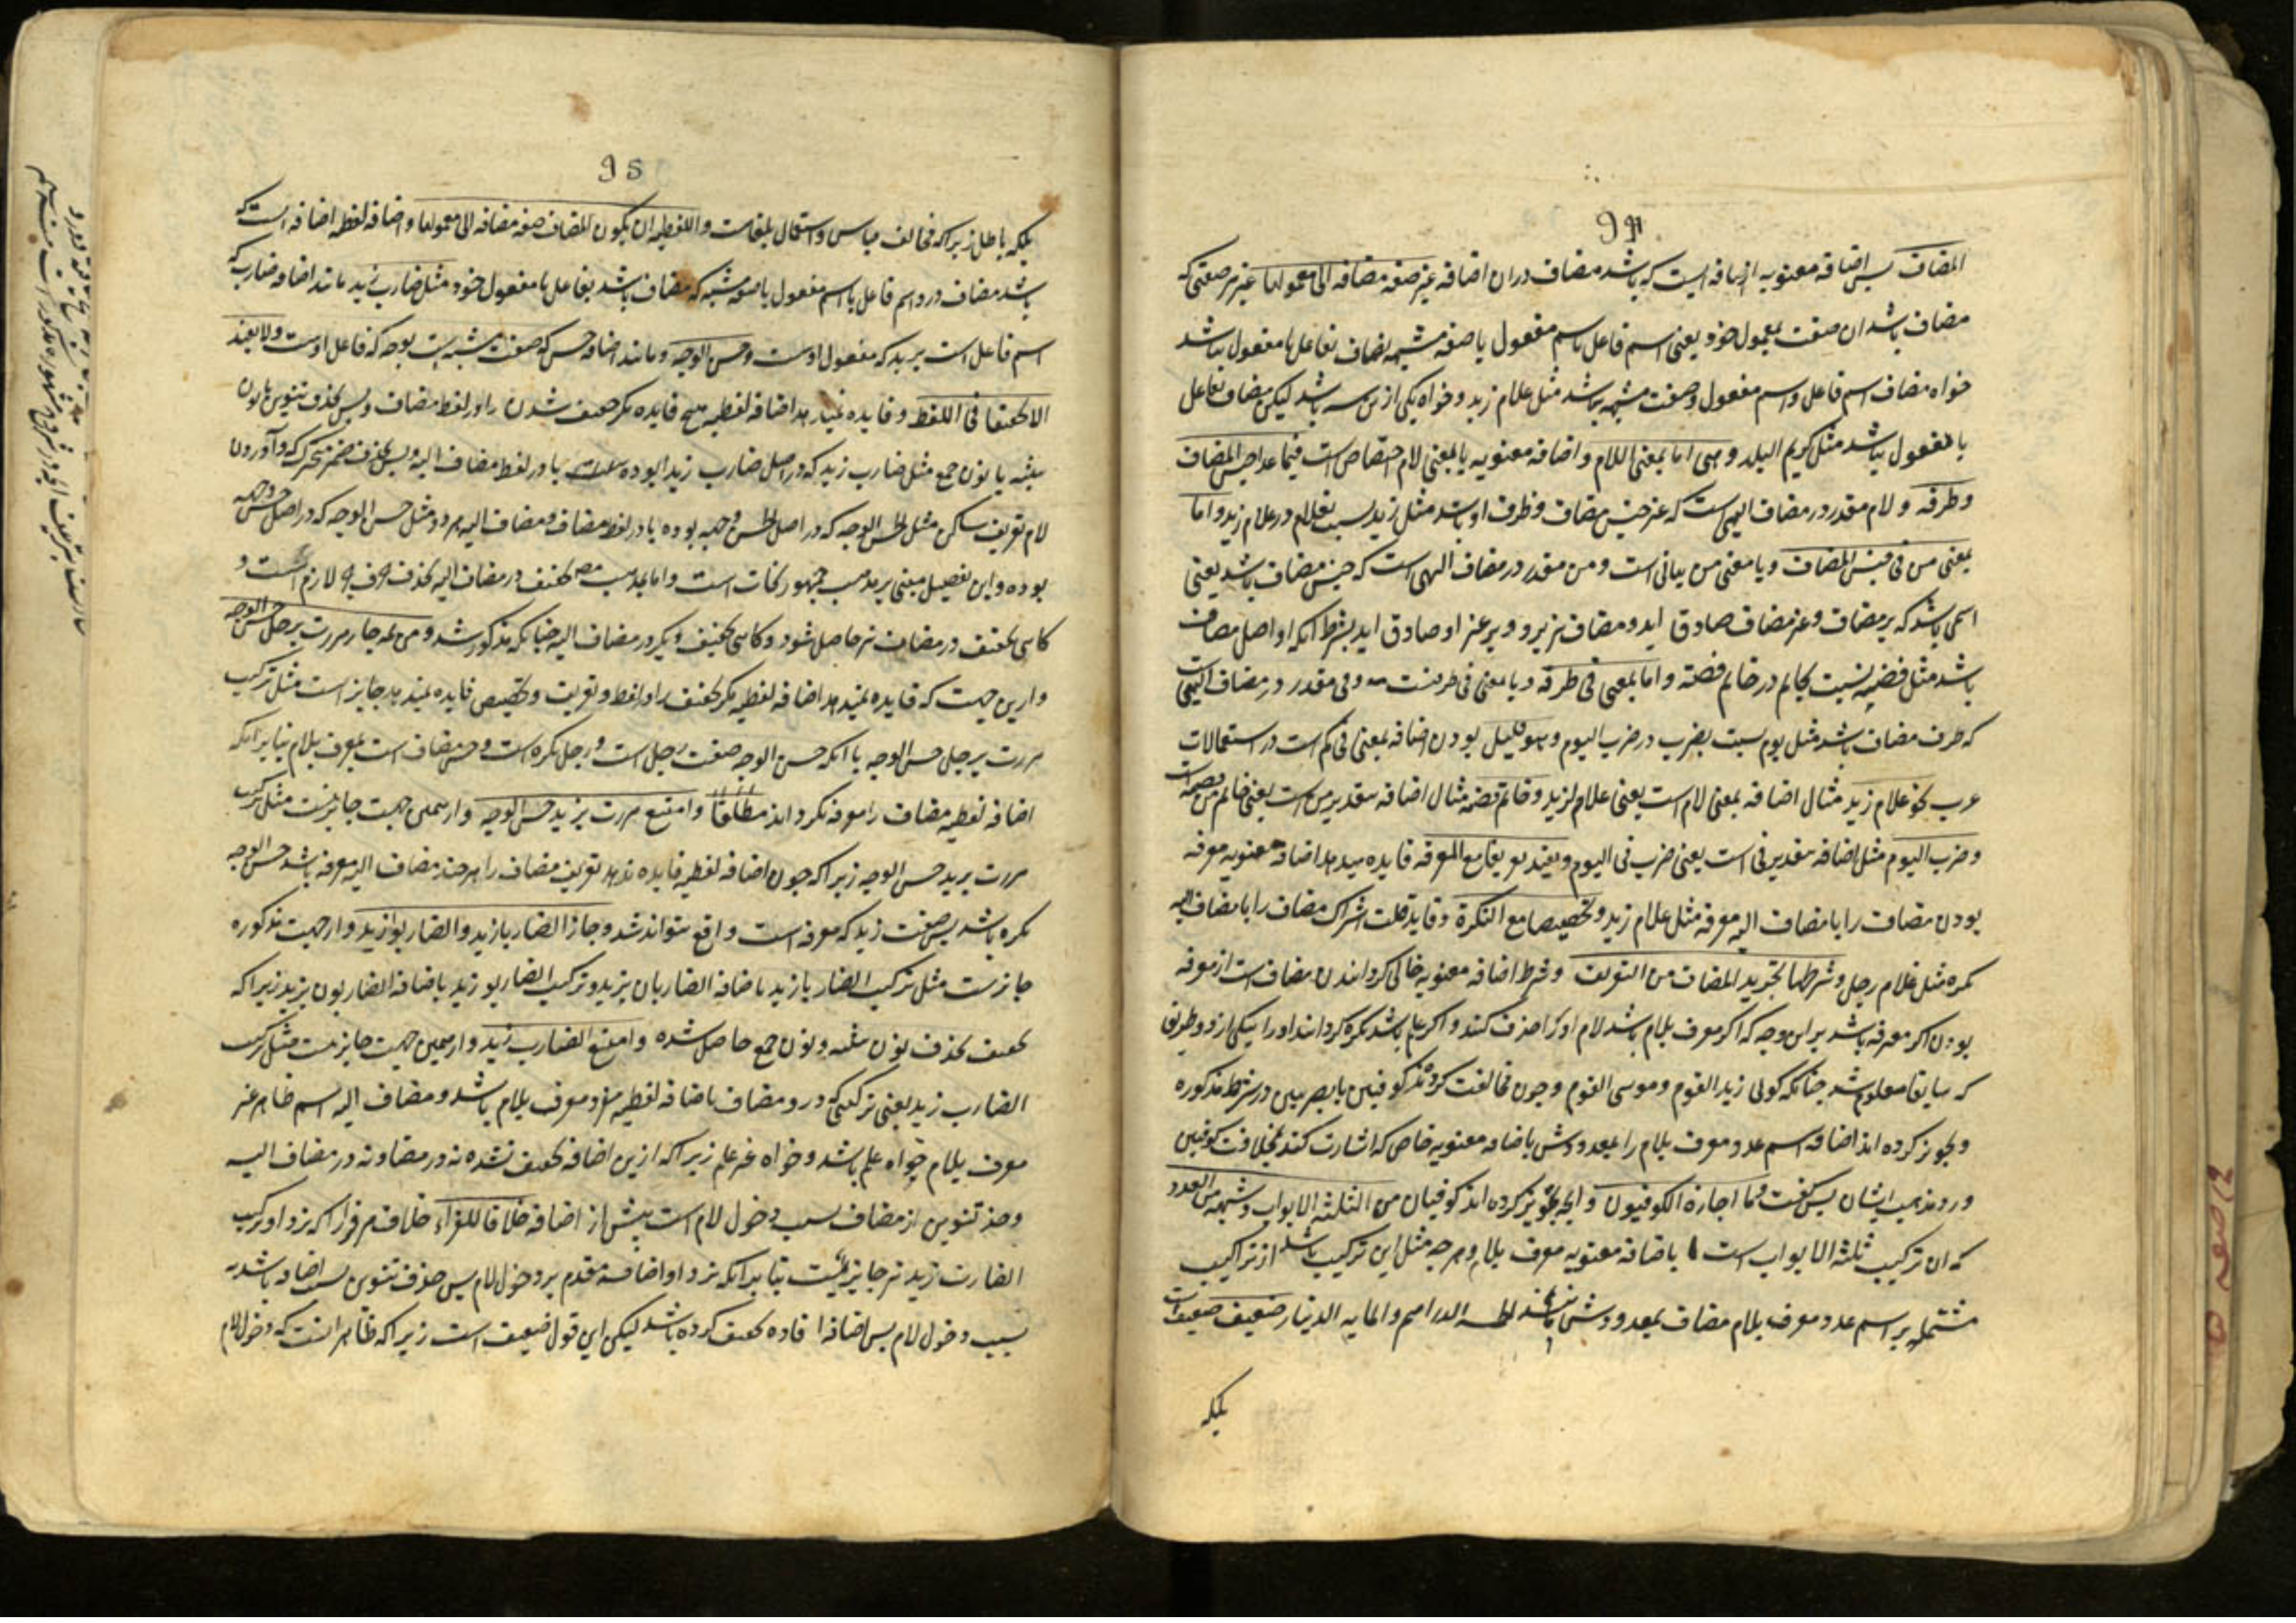 94
المضاف پس اضافه معنویه اضافه ایست که باشد مضاف دران اضافه غیر صفه مضافه الی معمولها غیر هر صفتی که
مضاف باشد ان صفت بمعمول خود یعنی اسم فاعل یا اسم مفعول یا صفه مشبهه مضاف بفاعل یا مفعول نباشد
خواه مضاف اسم فاعل و اسم مفعول و صفت مشبهه نباشد مثل غلام زید و خواه یکی ازین سه باشد لیکن مضاف بفاعل
یا مفعول نباشد مثل کریم البلد و هی اما بمعنی اللام و اضافه معنویه یا بمعنی لام اختصاص است فیما عدا جنس المضاف
و ظرفه و لام مقدر در مضاف الیهی است که غیر جنس مضاف و ظرف او باشد مثل زید نسبت بغلام در غلام زید و اما
بمعنی من فی جنس المضاف و یا معنی من بیانی است و من مقدر در مضاف الیهی است که جنس مضاف باشد یعنی
اسمی باشد که بر مضاف و غیر مضاف صادق اید و مضاف نیز برو و بر غیر او صادق اید بشرط انکه او اصل مضاف
باشد مثل فضه نسبت بخاتم در خاتم فضة و اما بمعنی فی ظرفه و یا معنی فی ظرفیت و فی مقدر در مضاف الیهی است
که ظرف مضاف باشد مثل یوم نسبت بضرب در ضرب الیوم و هو قلیل بودن اضافه بمعنی فی کم است در استعمالات
عرب نحو غلام زید مثال اضافه بمعنی لام است یعنی غلام لزید و خاتم فضه مثال اضافه بتقدیر من است یعنی خاتم من فضه است
و ضرب الیوم مثل اضافه بتقدیر فی است یعنی ضرب فی الیوم و یفید تعریفا مع المعرفه فایده میدهد اضافه معنویه معرفه
بودن مضاف را با مضاف الیه معرفه مثل غلام زید و تخصیصا مع النکرة و فایده قلت اشتراک مضاف را با مضاف الیه
نکره مثل غلام رجل و شرطها تجرید المضاف من التعریف و شرط اضافه معنویه خالی کردانیدن مضاف است از معرفه
بودن اکر معرفه باشد براین وجه که اکر معرف بلام باشد لام او را حذف کنند و اکر علم باشد نکره کردانند او را بیکی از دو طریق
که سابقا معلوم شد چنانکه کوئی زید القوم و موسی القوم و چون مخالفت کرده اند کوفیین با بصریین در شرط مذکوره
و تجویز کرده اند اضافه اسم عدد معرف بلام را بمعدودش باضافه معنویه خاص که اشارت کند بمخالفت کوفیین
و رد مذهب ایشان پس کفت و ما اجازه الکوفیون و انچه تجویز کرده اند کوفیان من الثلثة الابواب و شبهه من العدد
که ان ترکیب ثلثه الابواب است باضافه معنویه معرف بلام و هر چه مثل این ترکیب باشد از تراکیب
مشتمله بر اسم عدد معرف بلام مضاف بمعدودش مانند الخمسه الدراهم و المایه الدینار ضعیف ضعیف است
بلکه
95
بلکه باطل زیرا که مخالف قیاس و استعمال بلغاست و اللفظیه ان یکون المضاف صفه مضافه الی معمولها و اضافه لفظیه اضافه است که
باشد مضاف درو اسم فاعل یا اسم مفعول یا صفه مشبهه که مضاف باشد بفاعل یا مفعول خود مثل ضارب زید مانند اضافه ضارب که
اسم فاعل است بزید که مفعول اوست و حسن الوجه و مانند اضافه حسن که صفت مشبهه است بوجه که فاعل اوست و لا یفید
الا تخفیفا فی اللفظ و فایده نمیدهد اضافه لفظیه هیچ فایده مکر خفیف شدن را در لفظ مضاف و بس بحذف تنوین یا نون
تثنیه یا نون جمع مثل ضارب زید که در اصل ضارب زیدا بوده است یا در لفظ مضاف الیه و بس بحذف ضمیر متحرک و آوردن
لام تعریف ساکن مثل الحسن الوجه که در اصل الحسن وجهه بوده یا در لفظ مضاف و مضاف الیه هر دو مثل حسن الوجه که در اصل حسن وجهه
بوده و این تفصیل مبنی بر مذهب جمهور نحات است و اما بمذهب مص تخفیف در مضاف الیه لازم است و
کاهی تخفیف در مضاف نیز حاصل شود و کاهی تخفیف دیکر در مضاف الیه چنانکه مذکور شد و من ثمه جاز مررت برجل حسن الوجه
و ازین جهت که فایده نمیدهد اضافه لفظیه مکر تخفیف را در لفظ و تعریف و تخصیص فایده نمیدهد جایز است مثل ترکیب
مررت برجل حسن الوجه با انکه حسن الوجه صفت رجل است و رجل نکره است و حسن مضاف است بمعرف بلام بنابر انکه
اضافه لفظیه مضاف را معرفه نکرداند مطلقا و امتنع مررت بزید حسن الوجه و از همین جهت جایز نیست مثل ترکیب
مررت بزید حسن الوجه زیرا که چون اضافه لفظیه فایده ندهد تعریف مضاف را هر چند مضاف الیه معرفه باشد حسن الوجه
نکره باشد پس صفت زید که معرفه است واقع نتواند شد و جاز الضاربا زید و الضاربوا زید و ازجهت مذکوره
جایز است مثل ترکیب الضاربا زید باضافه الضاربان بزید و ترکیب الضاربو زید باضافه الضاربون بزید زیرا که
تخفیف بحذف نون تثنیه و نون جمع حاصل شده و امتنع الضارب زید و از همین جهت جایز نیست مثل ترکیب
الضارب زید یعنی ترکیبی که درو مضاف باضافه لفظیه مفرد معرف بلام باشد و مضاف الیه اسم ظاهر غیر
معرف بلام خواه علم باشد و خواه غیر علم زیرا که ازین اضافه تخفیف نشده نه در مضاف و نه در مضاف الیه
و حذف تنوین از مضاف بسبب دخول لام است پیش از اضافه خلافا للفراء خلاف مر فرا را که نزد او ترکیب
الضارب زید نیز جایز است بنابر انکه نزد او اضافه مقدم بر دخول لام پس حذف تنوین بسبب اضافه باشد نه
بسبب دخول لام پس اضافه افاده تخفیف کرده باشد لیکن این قول ضعیف است زیرا که ظاهر انست که دخول لام